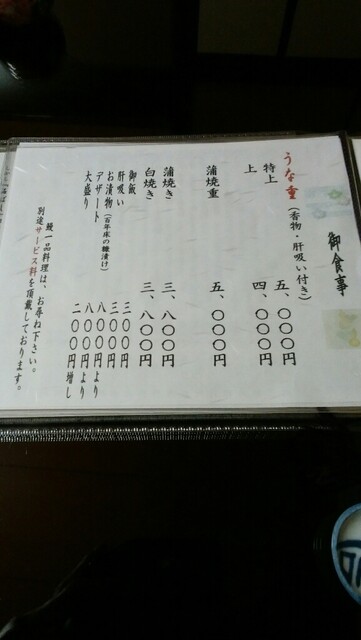 御食事
うな重（香物・肝吸い付き）
特上 五、〇〇〇円
上 四、〇〇〇円
蒲焼重 五、〇〇〇円
蒲焼き 三、八〇〇円
白焼き 三、八〇〇円
御飯 三〇〇円
肝吸い 三〇〇円
お漬物（百年床の糠漬け） 八〇〇円より
デザート 八〇〇より
大盛り 二〇〇円増し
鰻一品料理は、お尋ね下さい。
別途サービス料を頂戴しております。